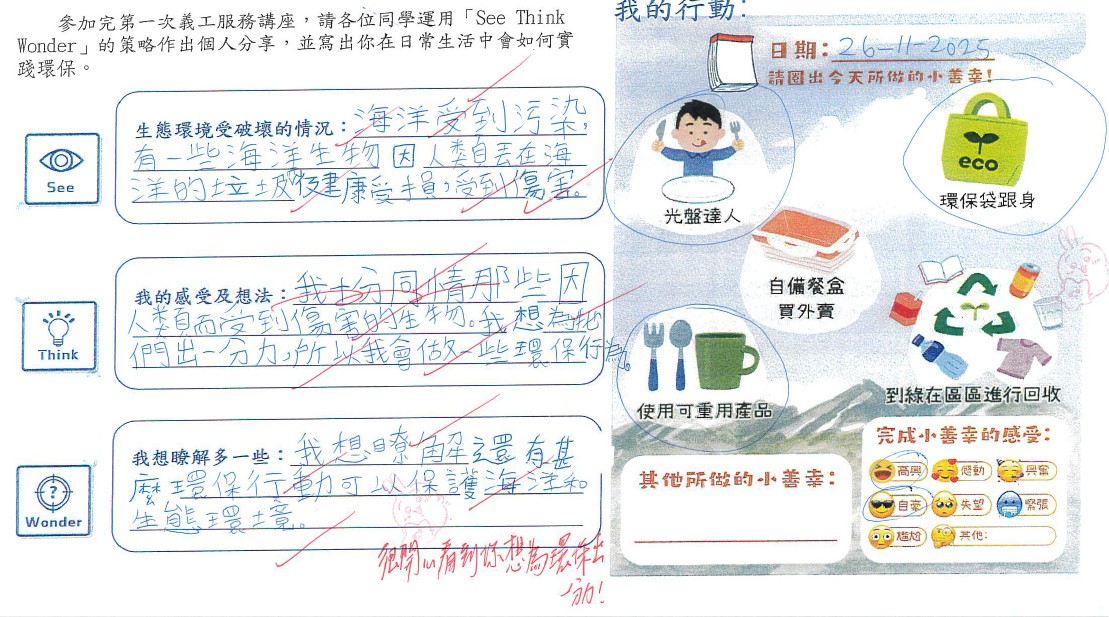 參加完第一次義工服務講座，請各位同學運用「See Think
Wonder」的策略作出個人分享，並寫出你在日常生活中會如何實
踐環保。
See
生態環境受破壞的情況：海洋受到污染，
有一些海洋生物因人類自丟在海
洋的垃圾後健康受損，受到傷害。
Think
我的感受及想法：我十分同情那些因
人類而受到傷害的生物。我想為牠
們出一分力，所以我會做一些環保行為。
Wonder
我想瞭解多一些：我想瞭解還有甚
麼環保行動可以保護海洋和
生態環境。
很開心看到你想為環保出
分力！
我的行動：
日期：26-11-2025
請圈出今天所做的小善幸！
光盤達人
eco
環保袋跟身
自備餐盒
買外賣
使用可重用產品
到綠在區區進行回收
其他所做的小善幸：
完成小善幸的感受：
高興
感動
興奮
自豪
失望
緊張
尷尬
其他：